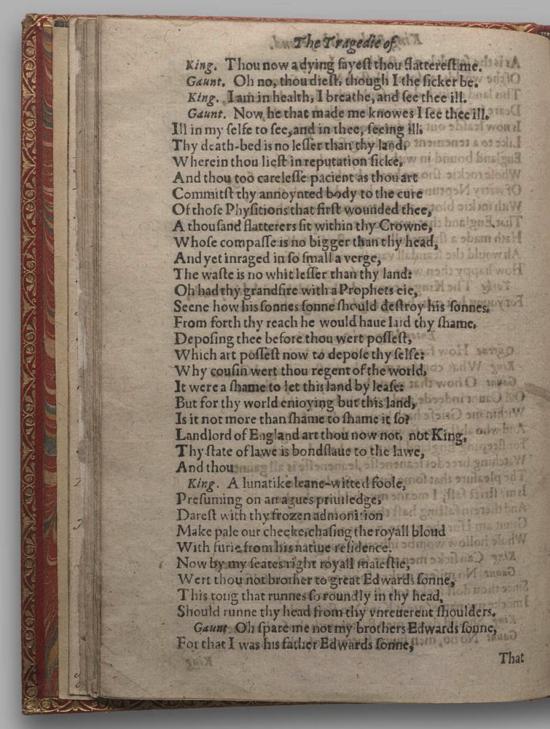 The Tragedie of
King. Thou now a dying sayest thou flatterest me.
Gaunt. Oh no, thou diest, though I the sicker be.
King. I am in health, I breathe, and see thee ill.
Gaunt. Now he that made me knowes I see thee ill.
Ill in my selfe to see, and in thee, seeing ill,
Thy death-bed is no lesser than thy land,
Wherein thou liest in reputation sicke,
And thou too carelesse pacient as thou art
Commitst thy annoynted body to the cure
Of those Physitions that first wounded thee,
A thousand flatterers sit within thy Crowne,
Whose compasse is no bigger than thy head,
And yet inraged in so small a verge,
The waste is no whit lesser than thy land:
Oh had thy grandsire with a Prophets eie,
Seene how his sonnes sonne should destroy his sonnes,
From forth thy reach he would haue laid thy shame,
Deposing thee before thou wert possest,
Which art possest now to depose thy selfe:
Why cousin wert thou regent of the world,
It were a shame to let this land by lease:
But for thy world enioying but this land,
Is it not more than shame to shame it so?
Landlord of England art thou now not, not King,
Thy state of lawe is bondslaue to the lawe,
And thou
King. A lunatike leane-witted foole,
Presuming on an agues priuiledge,
Darest with thy frozen admonition
Make pale our cheeke, chasing the royall bloud
With furie from his natiue residence.
Now by my seates right royall maiestie,
Wert thou not brother to great Edwards sonne,
This tong that runnes so roundly in thy head,
Should runne thy head from thy vnreuerent shoulders.
Gaunt Oh spare me not my brothers Edwards sonne,
For that I was his father Edwards sonne,
That